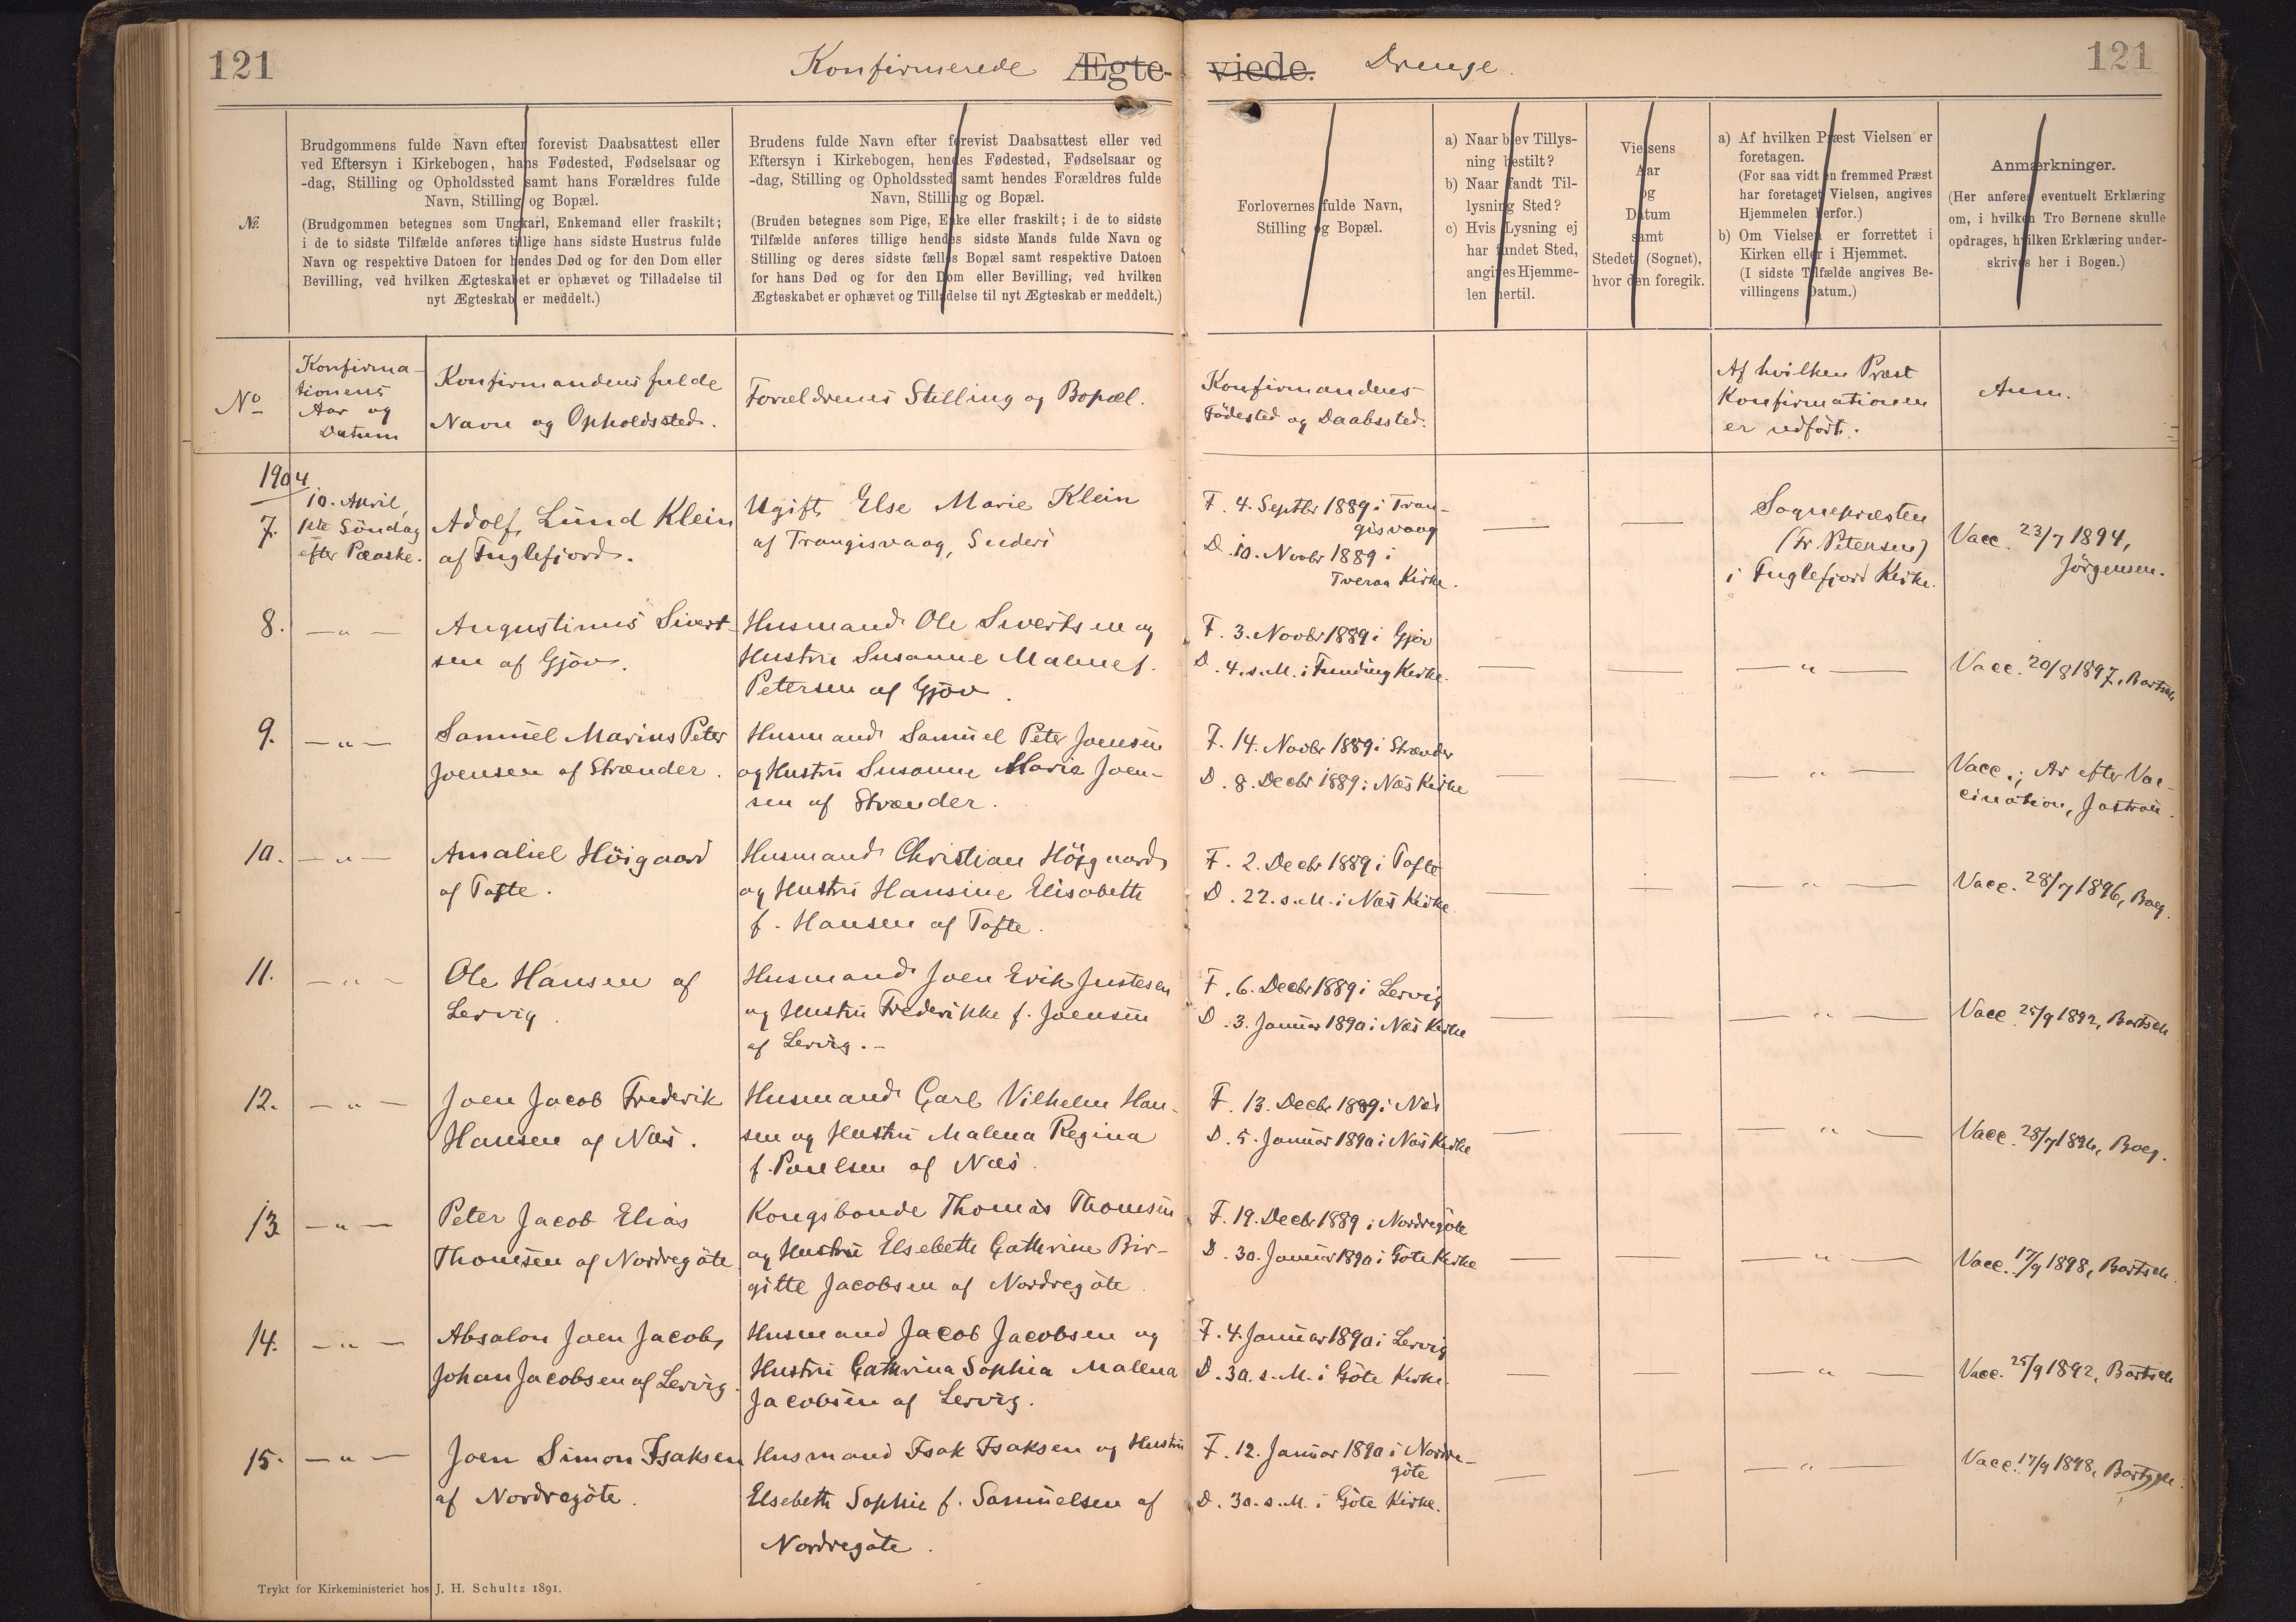 121
Konfirmerede Ægte-viede. Drenge.
121
No.
Brudgommens fulde Navn efter forevist Daabsattest eller
ved Eftersyn i Kirkebogen, hans Fødested, Fødselsaar og
-dag, Stilling og Opholdssted samt hans Forældres fulde
Navn, Stilling og Bopæl.
(Brudgommen betegnes som Ungkarl, Enkemand eller fraskilt;
i de to sidste Tilfælde anføres tillige hans sidste Hustrus fulde
Navn og respektive Datoen for hendes Død og for den Dom eller
Bevilling, ved hvilken Ægteskabet er ophævet og Tilladelse til
nyt Ægteskab er meddelt.)
Brudens fulde Navn efter forevist Daabsattest eller ved
Eftersyn i Kirkebogen, hendes Fødested, Fødselsaar og
-dag, Stilling og Opholdssted samt hendes Forældres fulde
Navn, Stilling og Bopæl.
(Bruden betegnes som Pige, Enke eller fraskilt; i de to sidste
Tilfælde anføres tillige hendes sidste Mands fulde Navn og
Stilling og deres sidste fælles Bopæl samt respektive Datoen
for hans Død og for den Dom eller Bevilling, ved hvilken
Ægteskabet er ophævet og Tilladelse til nyt Ægteskab er meddelt.)
Forlovernes fulde Navn,
Stilling og Bopæl.
a) Naar blev Tillys-
ning bestilt?
b) Naar fandt Til-
lysning Sted?
c) Hvis Lysning ej
har fundet Sted,
angives Hjemme-
len hertil.
Vielsens
Aar
og
Datum
samt
Stedet (Sognet),
hvor den foregik.
a) Af hvilken Præst Vielsen er
foretagen.
(For saa vidt en fremmed Præst
har foretaget Vielsen, angives
Hjemmelen herfor.)
b) Om Vielsen er forrettet i
Kirken eller i Hjemmet.
(I sidste Tilfælde angives Be-
villingens Datum.)
Anmærkninger.
(Her anføres eventuelt Erklæring
om, i hvilken Tro Børnene skulle
opdrages, hvilken Erklæring under-
skrives her i Bogen.)
No
Konfirma-
tionens
Aar og
Datum
Konfirmandens fulde
Navn og Opholdssted.
Forældrenes Stilling og Bopæl.
Konfirmandens
Födested og Daabssted.
Af hvilken Præst
Konfirmationen
er udfört.
Anm.
1904
7.
10. April,
1ste Söndag
efter Paaske.
Adolf Lund Klein
af Fuglefjord.
Ugift Else Marie Klein
af Trangisvaag, Suderö
F. 4. Septbr 1889 i Tran-
gisvaag
D. 10. Novbr 1889 i
Tveraa Kirke.
Sognepræsten
(Fr Petersen)
i Fuglefjord Kirke.
Vacc. 23/7 1894,
Jörgensen.
8.
— „ —
Augustinus Sivert-
sen af Gjov.
Husmand Ole Sivertsen og
Hustru Susanne Malene f.
Petersen af Gjov.
F. 3. Novbr 1889 i Gjov
D. 4. s. M. i Funding Kirke.
— „ —
Vacc. 20/8 1897, Bartsch
9.
— „ —
Samuel Marius Peter
Joensen af Strænder.
Husmand Samuel Peter Joensen
og Hustru Susanne Maria Joen-
sen af Strænder.
F. 14. Novbr 1889 i Strænder
D. 8. Decbr 1889 i Næs Kirke
— „ —
Vacc.; Ar efter Vac-
cination, Jastrau.
10.
— „ —
Amaliel Höigaard
af Tofte.
Husmand Christian Höjgaard
og Hustru Hansine Elisabeth
f. Hansen af Tofte.
F. 2. Decbr 1889 i Tofte
D. 22. s. M. i Næs Kirke
— „ —
Vacc. 28/7 1896, Boeg.
11.
— „ —
Ole Hansen af
Lervig.
Husmand Joen Erik Justesen
og Hustru Frederikke f. Joensen
af Lervig. –
F. 6. Decbr 1889 i Lervig
D. 3. Januar 1890 i Næs Kirke
— „ —
Vacc. 25/9 1892, Bartsch
12.
— „ —
Joen Jacob Frederik
Hansen af Næs.
Husmand Carl Vilhelm Han-
sen og Hustru Malena Regina
f. Poulsen af Næs.
F. 13. Decbr 1889 i Næs
D. 5. Januar 1890 i Næs Kirke
— „ —
Vacc. 28/7 1896, Boeg.
13.
— „ —
Peter Jacob Elias
Thomsen af Nordregöte
Kongsbonde Thomas Thomsen
og Hustru Elsebeth Cathrine Bir-
gitte Jacobsen af Nordregöte
F. 19. Decbr 1889 i Nordregöte
D. 30. Januar 1890 i Göte Kirke
— „ —
Vacc. 17/9 1898, Bartsch.
14.
— „ —
Absalon Joen Jacob
Johan Jacobsen af Lervig.
Husmand Jacob Jacobsen og
Hustru Cathrina Sophia Malena
Jacobsen af Lervig.
F. 4. Januar 1890 i Lervig
D. 30. s. M. i Göte Kirke.
— „ —
Vacc. 25/9 1892, Bartsch
15.
— „ —
Joen Simon Isaksen
af Nordregöte.
Husmand Isak Isaksen og Hustru
Elsebeth Sophie f. Samuelsen af
Nordregöte.
F. 12. Januar 1890 i Nordre-
göte
D. 30. s. M. i Göte Kirke.
— „ —
Vacc. 17/9 1898, Bartsch.
Trykt for Kirkeministeriet hos J. H. Schultz 1891.